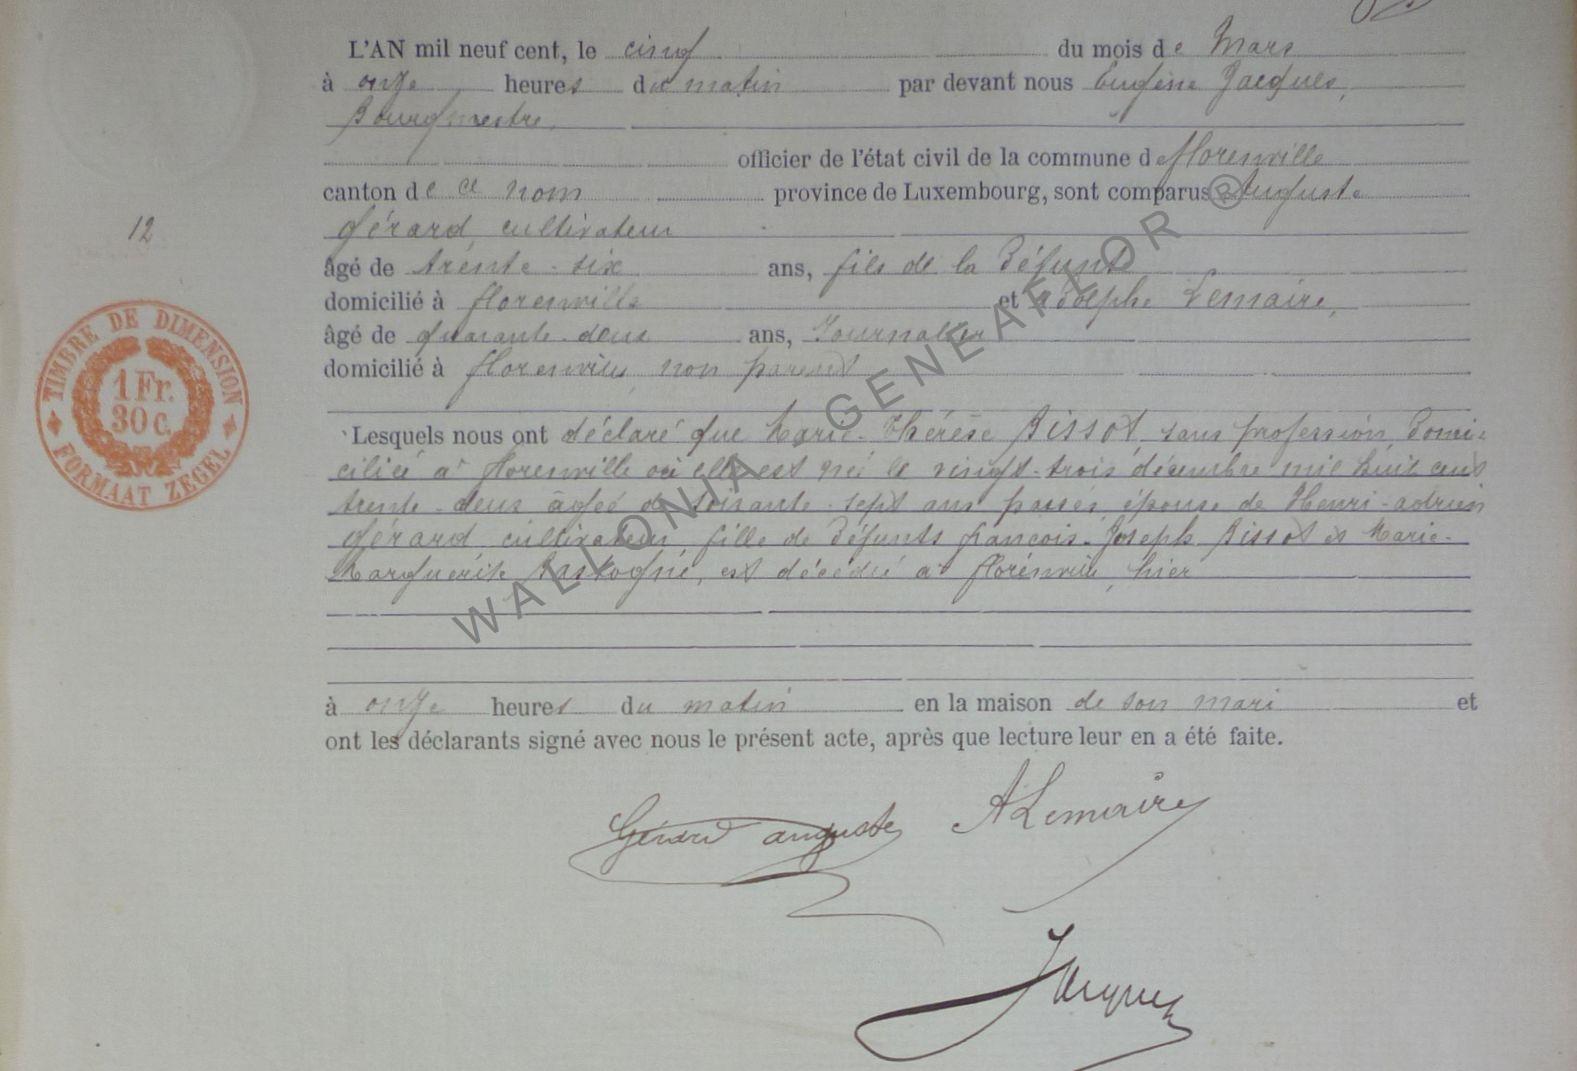 L'AN mil neuf cent, le cinq du mois de Mars
à onze heures du matin par devant nous Eugène Jacques,
Bourgmestre,
officier de l'état civil de la commune de florenville
canton de ce nom province de Luxembourg, sont comparus Auguste
Gérard, cultivateur
âgé de trente-six ans, fils de la Défunte
domicilié à florenville et Adolphe Lemaire,
âgé de quarante-deux ans, Journalier
domicilié à florenville, non parent
Lesquels nous ont déclaré que Marie-Thérèse Bissot, sans profession, Domi-
ciliée à florenville où elle est née le vingt-trois décembre mil huit cent
trente-deux âgée de soixante-sept ans passés, épouse de Henri-adrien
Gérard, cultivateur, fille de Défunts françois-Joseph Bissot et Marie-
Marguerite Bastogne, est décédée à florenville, hier
à onze heures du matin en la maison de son mari et
ont les déclarants signé avec nous le présent acte, après que lecture leur en a été faite.
12
TIMBRE DE DIMENSION
1 Fr.
30 C.
FORMAAT ZEGEL
WALLONIA GENEAFLOR ®
Gérard auguste
A Lemaire
Jacques